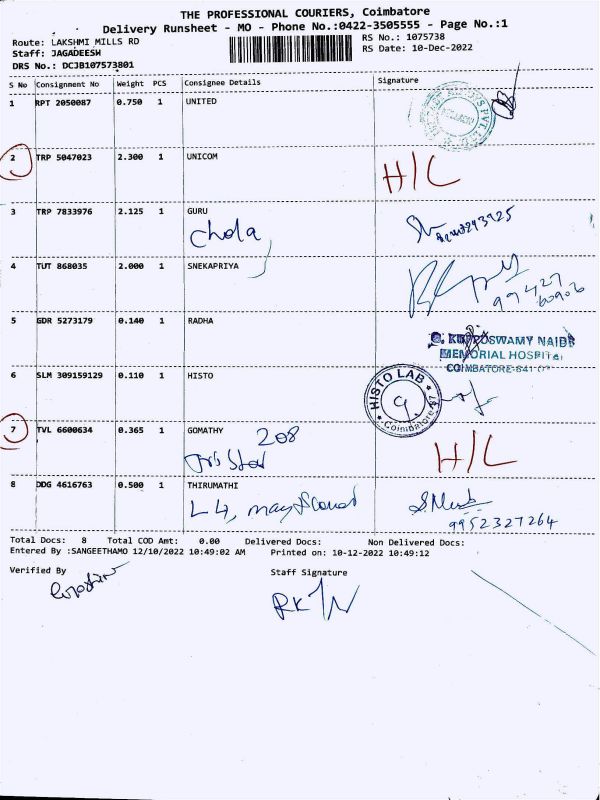 THE PROFESSIONAL COURIERS, Coimbatore
Delivery Runsheet - MO - Phone No.:0422-3505555 - Page No.:1
Route: LAKSHMI MILLS RD RS No.: 1075738
Staff: JAGADEESH RS Date: 10-Dec-2022
DRS No.: DCJB107573801
S No Consignment No Weight PCS Consignee Details Signature
1 RPT 2050087 0.750 1 UNITED
2 TRP 5047023 2.300 1 UNICOM H/C
3 TRP 7833976 2.125 1 GURU
Chola
4 TUT 868035 2.000 1 SNEKAPRIYA
99427
60906
5 GDR 5273179 0.140 1 RADHA
G. KUPPUSWAMY NAIDU
MEMORIAL HOSPITAL
COIMBATORE-641 0
6 SLM 309159129 0.110 1 HISTO
HISTO LAB
Coimbatore-37
7 TVL 6600634 0.365 1 GOMATHY 208 H/C
8 DDG 4616763 0.500 1 THIRUMATHI
L4,
9952327264
Total Docs: 8 Total COD Amt: 0.00 Delivered Docs: Non Delivered Docs:
Entered By :SANGEETHAMO 12/10/2022 10:49:02 AM Printed on: 10-12-2022 10:49:12
Verified By Staff Signature